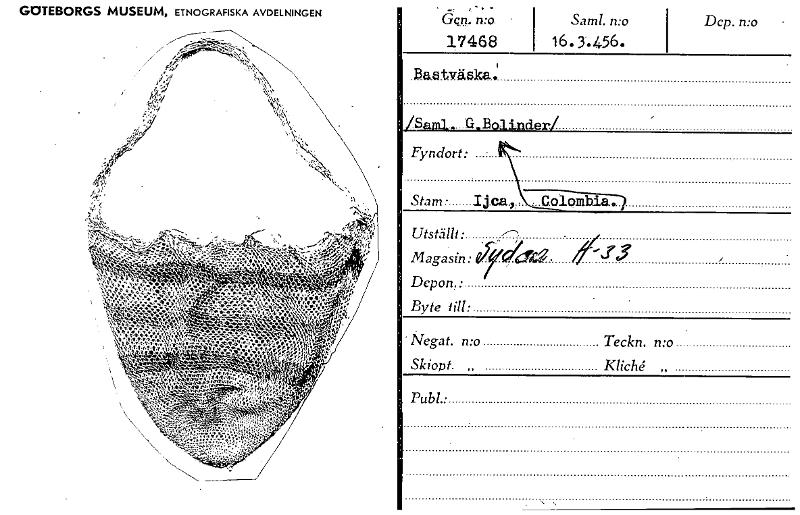 GÖTEBORGS MUSEUM, ETNOGRAFISKA AVDELNINGEN
Gen. n:o Saml. n:o Dep. n:o
17468 16.3.456.
Bastväska.
/Saml. G.Bolinder/
Fyndort:
Stam: Ijca, Colombia.
Utställt:
Magasin: H-33
Depon.:
Byte till:
Negat. n:o Teckn. n:o
Skiopt. „ Kliché „
Publ.: